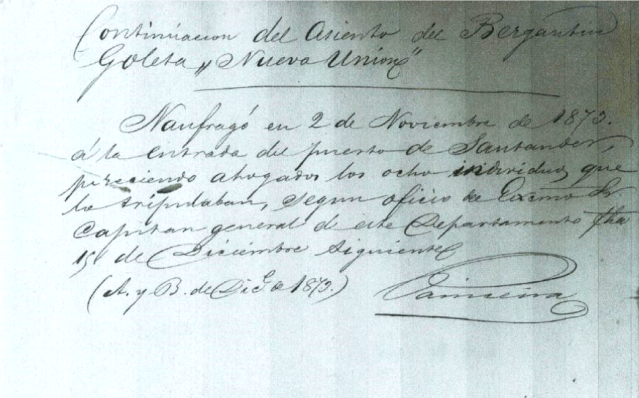 Continuacion del Asiento del Bergantin
Goleta „Nueva Union"
Naufragó en 2 de Noviembre de 1873.
á la entrada del puerto de Santander,
pereciendo ahogados los ocho individuos que
la tripulaban, segun oficio de Excmo Sr
Capitan general de este Departamento fha
15 de Diciembre siguiente
(A. y B. de Dic.e de 1873.)